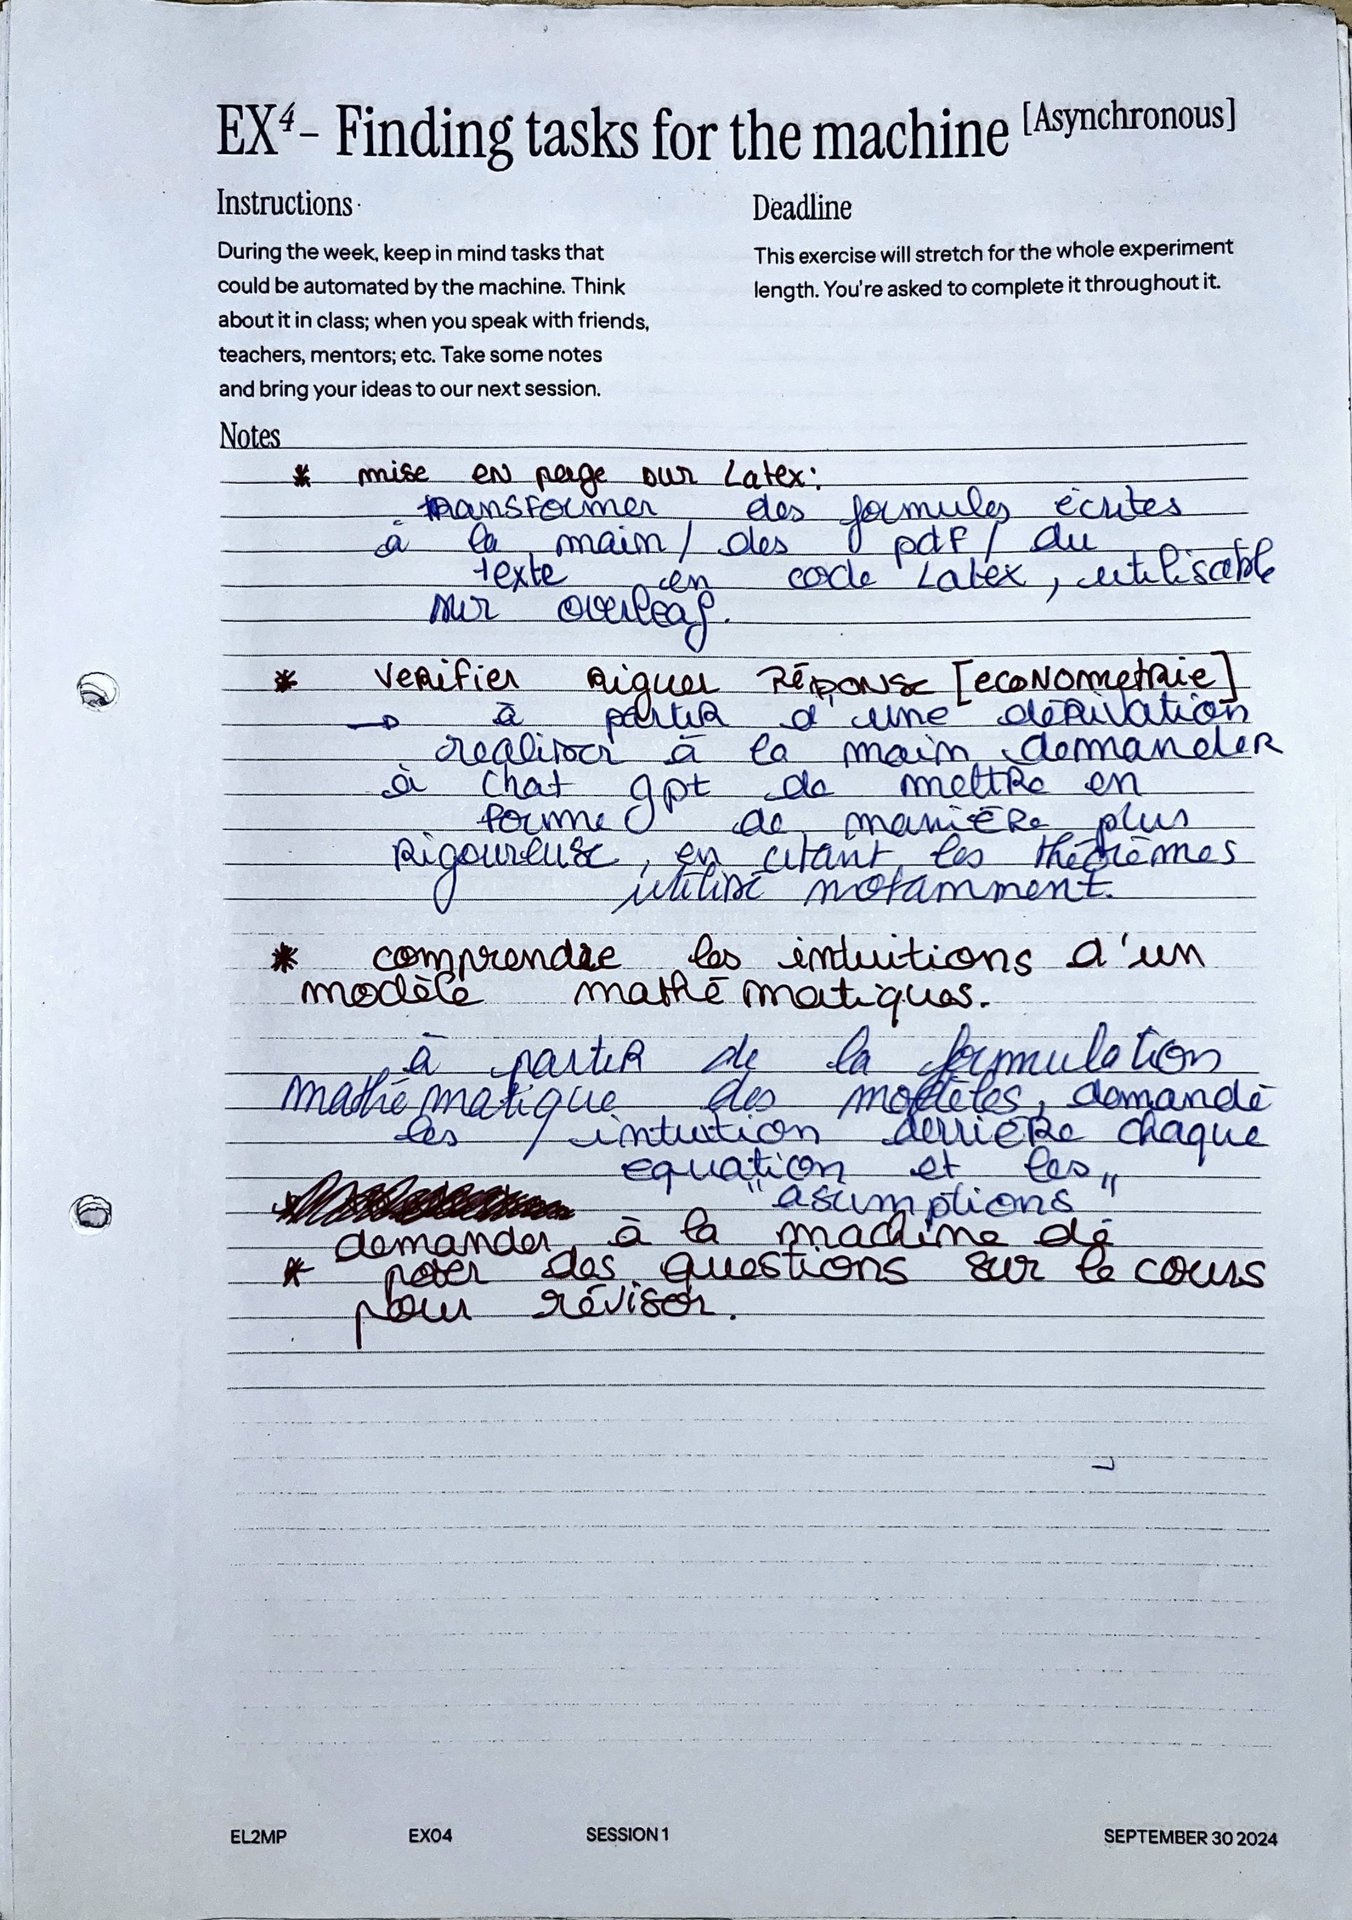 EX4 – Finding tasks for the machine [Asynchronous]
Instructions
During the week, keep in mind tasks that
could be automated by the machine. Think
about it in class; when you speak with friends,
teachers, mentors; etc. Take some notes
and bring your ideas to our next session.
Deadline
This exercise will stretch for the whole experiment
length. You're asked to complete it throughout it.
Notes
* mise en page sur Latex:
transformer des formules écrites
à la main / des pdf / du
texte en code Latex, utilisable
sur overleaf.
* verifier riguer réponse [econometrie]
→ à partir d'une dérivation
realiser à la main demander
à chat gpt de mettre en
forme de manière plus
rigoureuse, en citant les théorèmes
utilisé notamment.
* comprendre les intuitions d'un
modèle mathématiques.
à partir de la formulation
mathématique des modèles, demandé
les intuition derrière chaque
equation et les
"asumptions"
demander à la machine de
* poser des questions sur le cours
pour réviser.
EL2MP EX04 SESSION 1 SEPTEMBER 30 2024